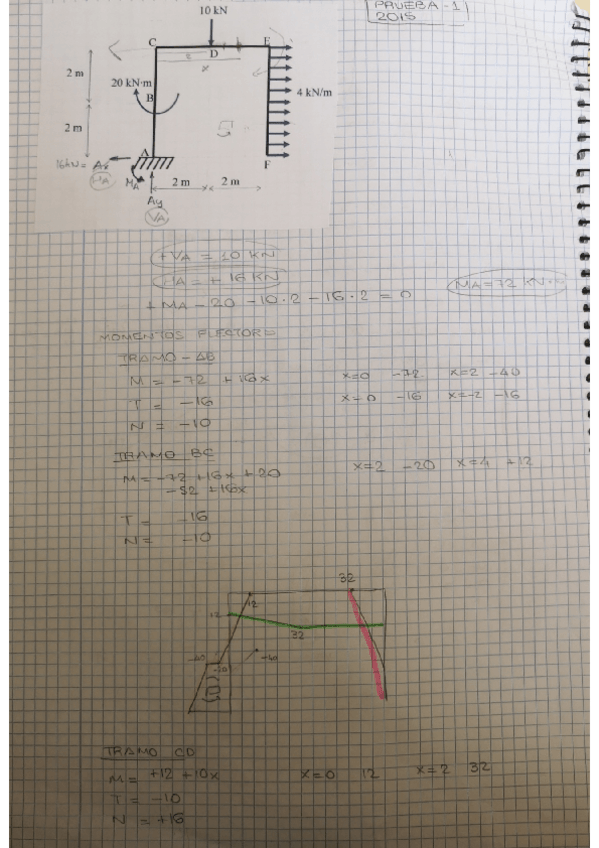 PRUEBA-1
2015
10 kN
C
D
E
x
2 m
20 kN·m
B
4 kN/m
2 m
A
16kN = Ax
HA
MA
F
2 m
2 m
Ay
VA
+VA = 10 KN
HA = + 16 KN
+ MA - 20 - 10·2 - 16·2 = 0
MA=72 KN·m
MOMENTOS FLECTORES
TRAMO - AB
M = -72 + 16x x=0 -72 x=2 -40
T = -16 x=0 -16 x=-2 -16
N = -10
TRAMO BC
M = -72 +16x +20 x=2 -20 x=4 +12
-52 +16x
T = -16
N = -10
32
12
12
32
-20
-20
-40
TRAMO CD
M = +12 +10x x=0 12 x=2 32
T = -10
N = +16